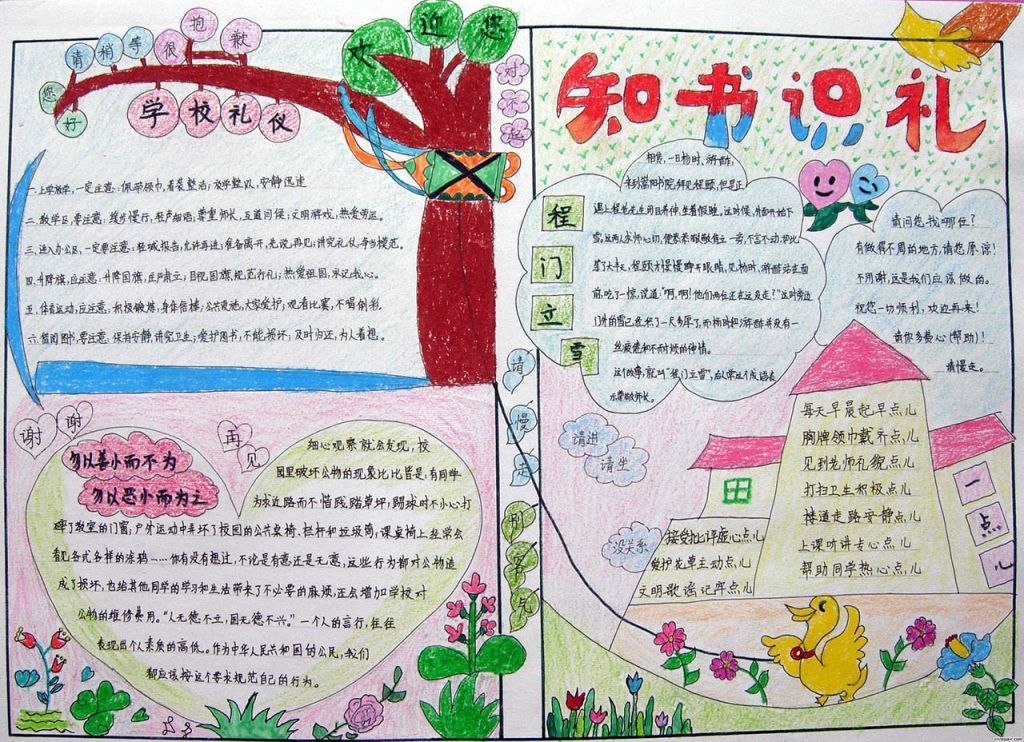 您好
请稍等
很抱歉
欢迎您
对不起
学校礼仪
一.上学放学,一定注意:佩带领巾,着装整洁;放学整队,安静迅速
二.教学区,要注意:缓步慢行,轻声细语;尊重师长,互道问候;文明游戏,热爱劳运。
三.进入办公区,一定要注意:轻喊报告,允许再进;准备离开,先说再见;讲究礼仪,争当模范。
四.升降旗,应注意:升降国旗,庄严肃立;目视国旗,规范行礼;热爱祖国,永记我心。
五.体育运动,应注意:积极锻炼,身体倍棒;公共设施,大家爱护;观看比赛,不喝倒彩。
六.借阅图书,要注意:保持安静,讲究卫生;爱护图书,不能损坏;及时归还,为人着想。
谢谢
再见
请慢走
别客气
勿以善小而不为
勿以恶小而为之
细心观察就会发现,校
园里破坏公物的现象比比皆是:有同学
为求近路而不惜践踏草坪;踢球时不小心打
碎了教室的门窗;户外运动中弄坏了校园的公共桌椅、栏杆和垃圾筒;课桌椅上经常会
看见各式各样的涂鸦……你有没有想过,不论是有意还是无意,这些行为都对公物造
成了损坏,也给其他同学的学习和生活带来了不必要的麻烦,还会增加学校对
公物的维修费用。“人无德不立,国无德不兴。”一个人的言行,往往
表现出个人素质的高低。作为中华人民共和国的公民,我们
都应该按这个要求规范自己的行为。
知书识礼
程门立雪
相传,一日杨时、游酢,
来到嵩阳书院拜见程颐,但是正
遇上程老先生闭目养神,坐着假睡。这时候,外面开始下
雪。这两人求师心切,便恭恭敬敬侍立一旁,不言不动,如此
等了大半天,程颐才慢慢睁开眼睛,见杨时、游酢站在面
前,吃了一惊,说道:“啊,啊!他们两位还在这儿走?”这时旁边
门外的雪已经积了一尺多厚了,而杨时和游酢并没有一
丝疲倦和不耐烦的神情。
这个故事,就叫“程门立雪”,
示尊敬师长。
请问您找哪位?
有做得不周的地方,请您原谅!
不用谢,这是我们应该做的。
祝您一切顺利,欢迎再来!
请你多费心(帮助)!
请慢走。
请进
请坐
没关系
每天早晨起早点儿
胸牌领巾戴齐点儿
见到老师礼貌点儿
打扫卫生积极点儿
楼道走路安静点儿
上课听讲专心点儿
帮助同学热心点儿
接受批评虚心点儿
爱护花草主动点儿
文明歌谣记牢点儿
一点儿